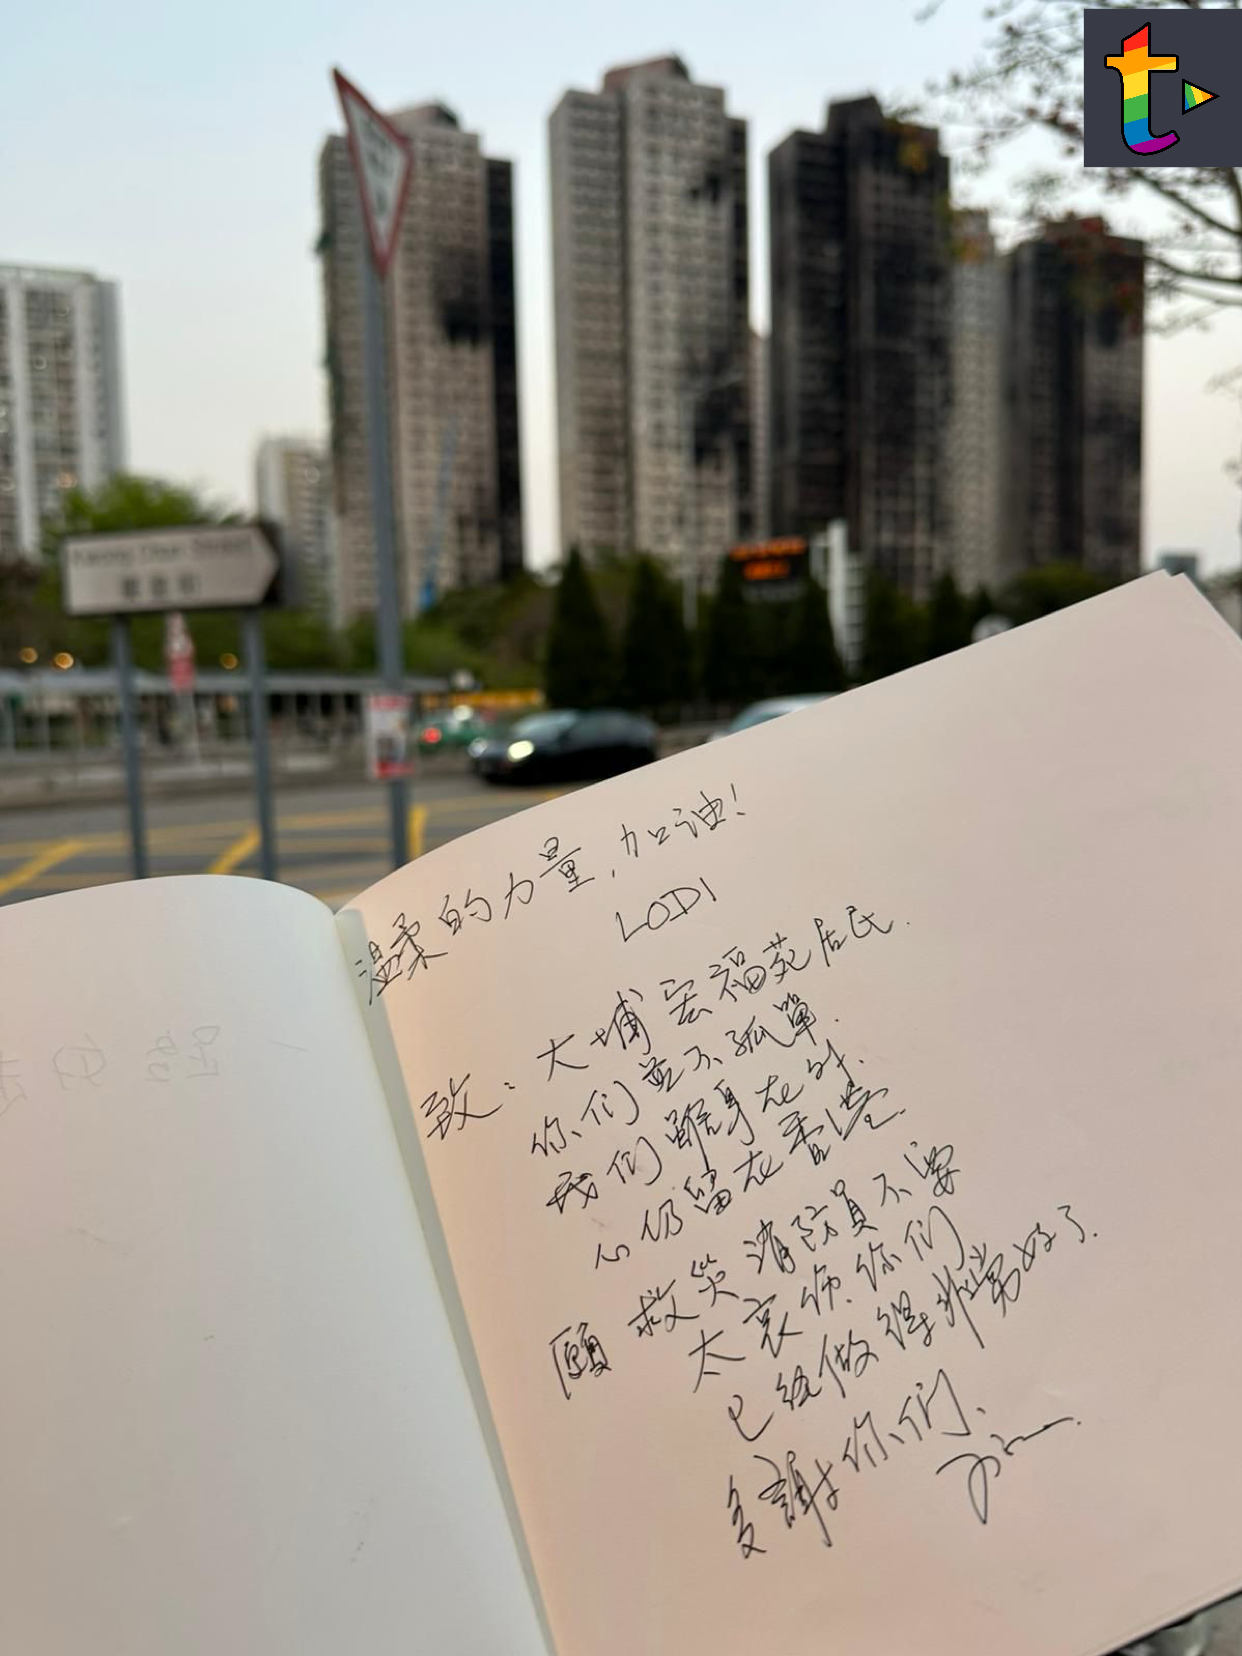 Kwong Chun Street
溫柔的力量,加油!
LODI
致:大埔宏福苑居民.
你们並不孤單.
我们雖身在外.
心仍留在香港.
願救災消防員不要
太哀伤.你们
已经做得非常好了.
多謝你们、